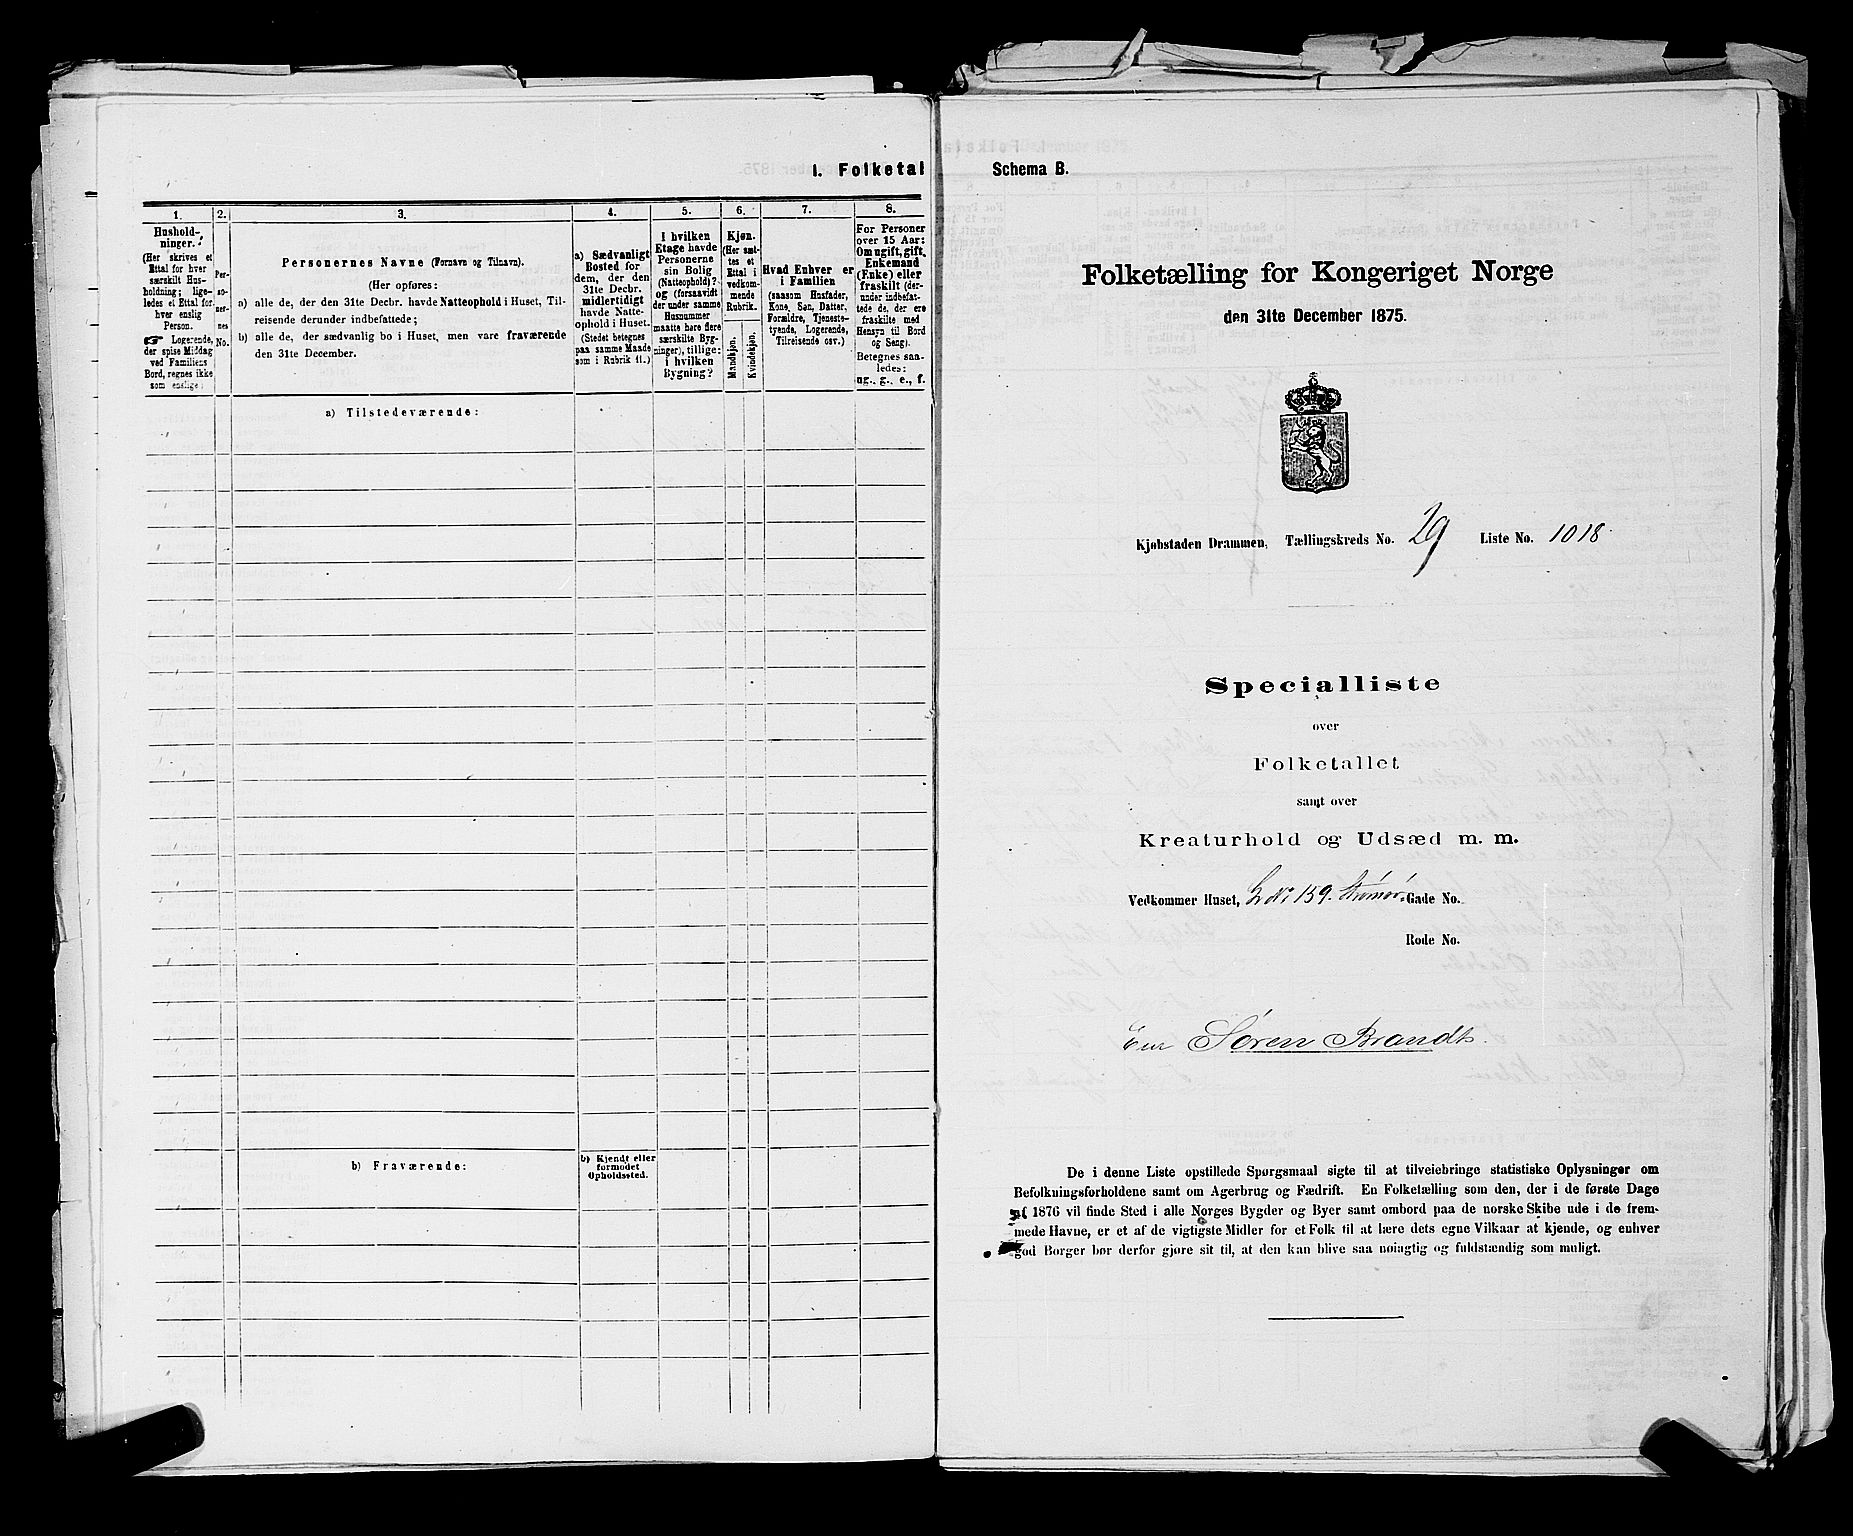 I. Folketal
1.
2.
3.
4.
5.
6.
7.
8.
Hushold-
ninger.
(Her skrives et
Ettal for hver
særskilt Hus-
holdning; lige-
ledes et Ettal for
hver enslig
Person.
☞ Logerende,
der spise Middag
ved Familiens
Bord, regnes ikke
som enslige.)
Per-
so-
ner-
nes
No.
Personernes Navne (Fornavn og Tilnavn).
(Her opføres:
a) alle de, der den 31te Decbr. havde Natteophold i Huset, Til-
reisende derunder indbefattede;
b) alle de, der sædvanlig bo i Huset, men vare fraværende
den 31te December.
a) Sædvanligt
Bosted for
dem, der den
31te Decbr.
midlertidigt
havde Natte-
ophold i Huset.
(Stedet betegnes
paa samme Maade
som i Rubrik 11.)
I hvilken
Etage havde
Personerne
sin Bolig
(Natteophold)?
og (forsaavidt
der under samme
Husnummer
maatte høre flere
særskilte Byg-
ninger), tillige:
i hvilken
Bygning?
Kjøn.
(Her sæt-
tes et
Ettal i
vedkom-
mende
Rubrik.
Mandkjøn.
Kvindekjøn.
Hvad Enhver er
i Familien
(saasom Husfader,
Kone, Søn, Datter,
Forældre, Tjeneste-
tyende, Logerende,
Tilreisende osv.)
For Personer
over 15 Aar:
Om ugift, gift,
Enkemand
(Enke) eller
fraskilt (der-
under indbefat-
tede de, der ere
fraskilte med
Hensyn til Bord
og Seng).
Betegnes saa-
ledes:
ug., g., e., f.
a) Tilstedeværende:
b) Fraværende:
b) Kjendt eller
formodet
Opholdssted.
Schema B.
Folketælling for Kongeriget Norge
den 31te December 1875.
Kjøbstaden Drammen, Tællingskreds No. 29 Liste No. 1018
Specialliste
over
Folketallet
samt over
Kreaturhold og Udsæd m. m.
Vedkommer Huset, No 159. Strømsø Gade No.
Rode No.
Eier Søren Brandt.
De i denne Liste opstillede Spørgsmaal sigte til at tilveiebringe statistiske Oplysninger om
Befolkningsforholdene samt om Agerbrug og Fædrift. En Folketælling som den, der i de første Dage
af 1876 vil finde Sted i alle Norges Bygder og Byer samt ombord paa de norske Skibe ude i de frem-
mede Havne, er et af de vigtigste Midler for et Folk til at lære dets egne Vilkaar at kjende, og enhver
god Borger bør derfor gjøre sit til, at den kan blive saa nøiagtig og fuldstændig som muligt.